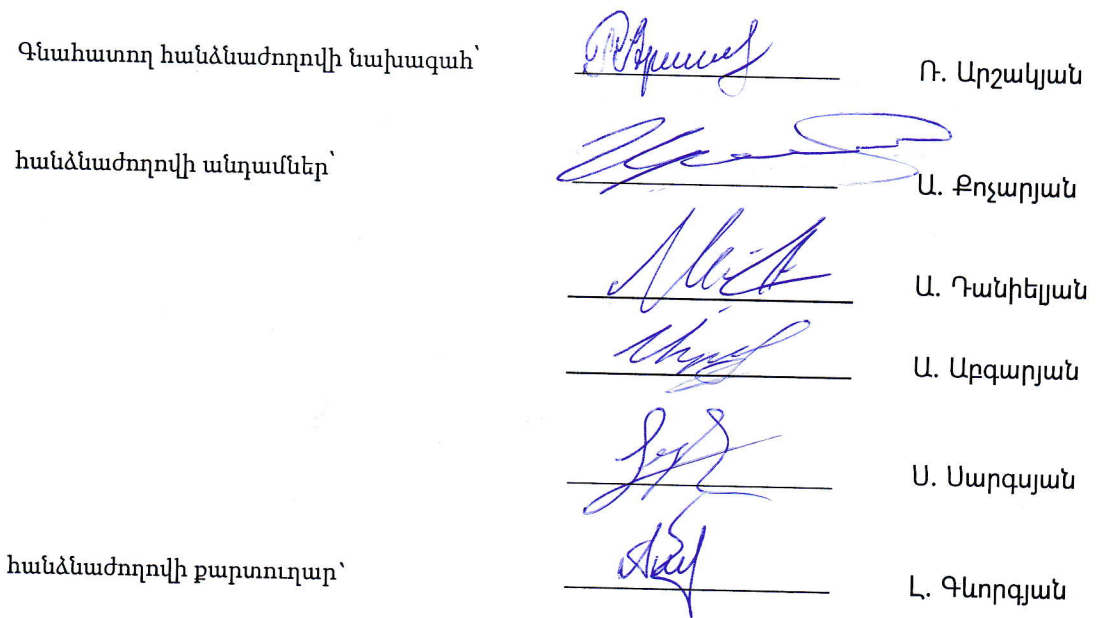 Գնահատող հանձնաժողովի նախագահ՝ Ռ. Արշակյան
հանձնաժողովի անդամներ՝ Ա. Քոչարյան
Ա. Դանիելյան
Ա. Աբգարյան
Ս. Սարգսյան
հանձնաժողովի քարտուղար՝ Լ. Գևորգյան